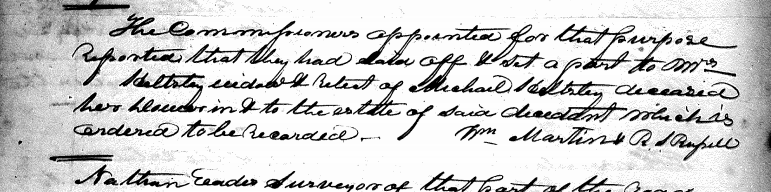 The Commissioners appointed for that purpose
reported that they had laid off & set a part to Mrs
widow & relict of Michael deceased
her dower in & to the estate of said decedant which is
ordered to be recorded — Wm Martin & R S Russell
Nathan Surveyor of that part of the road